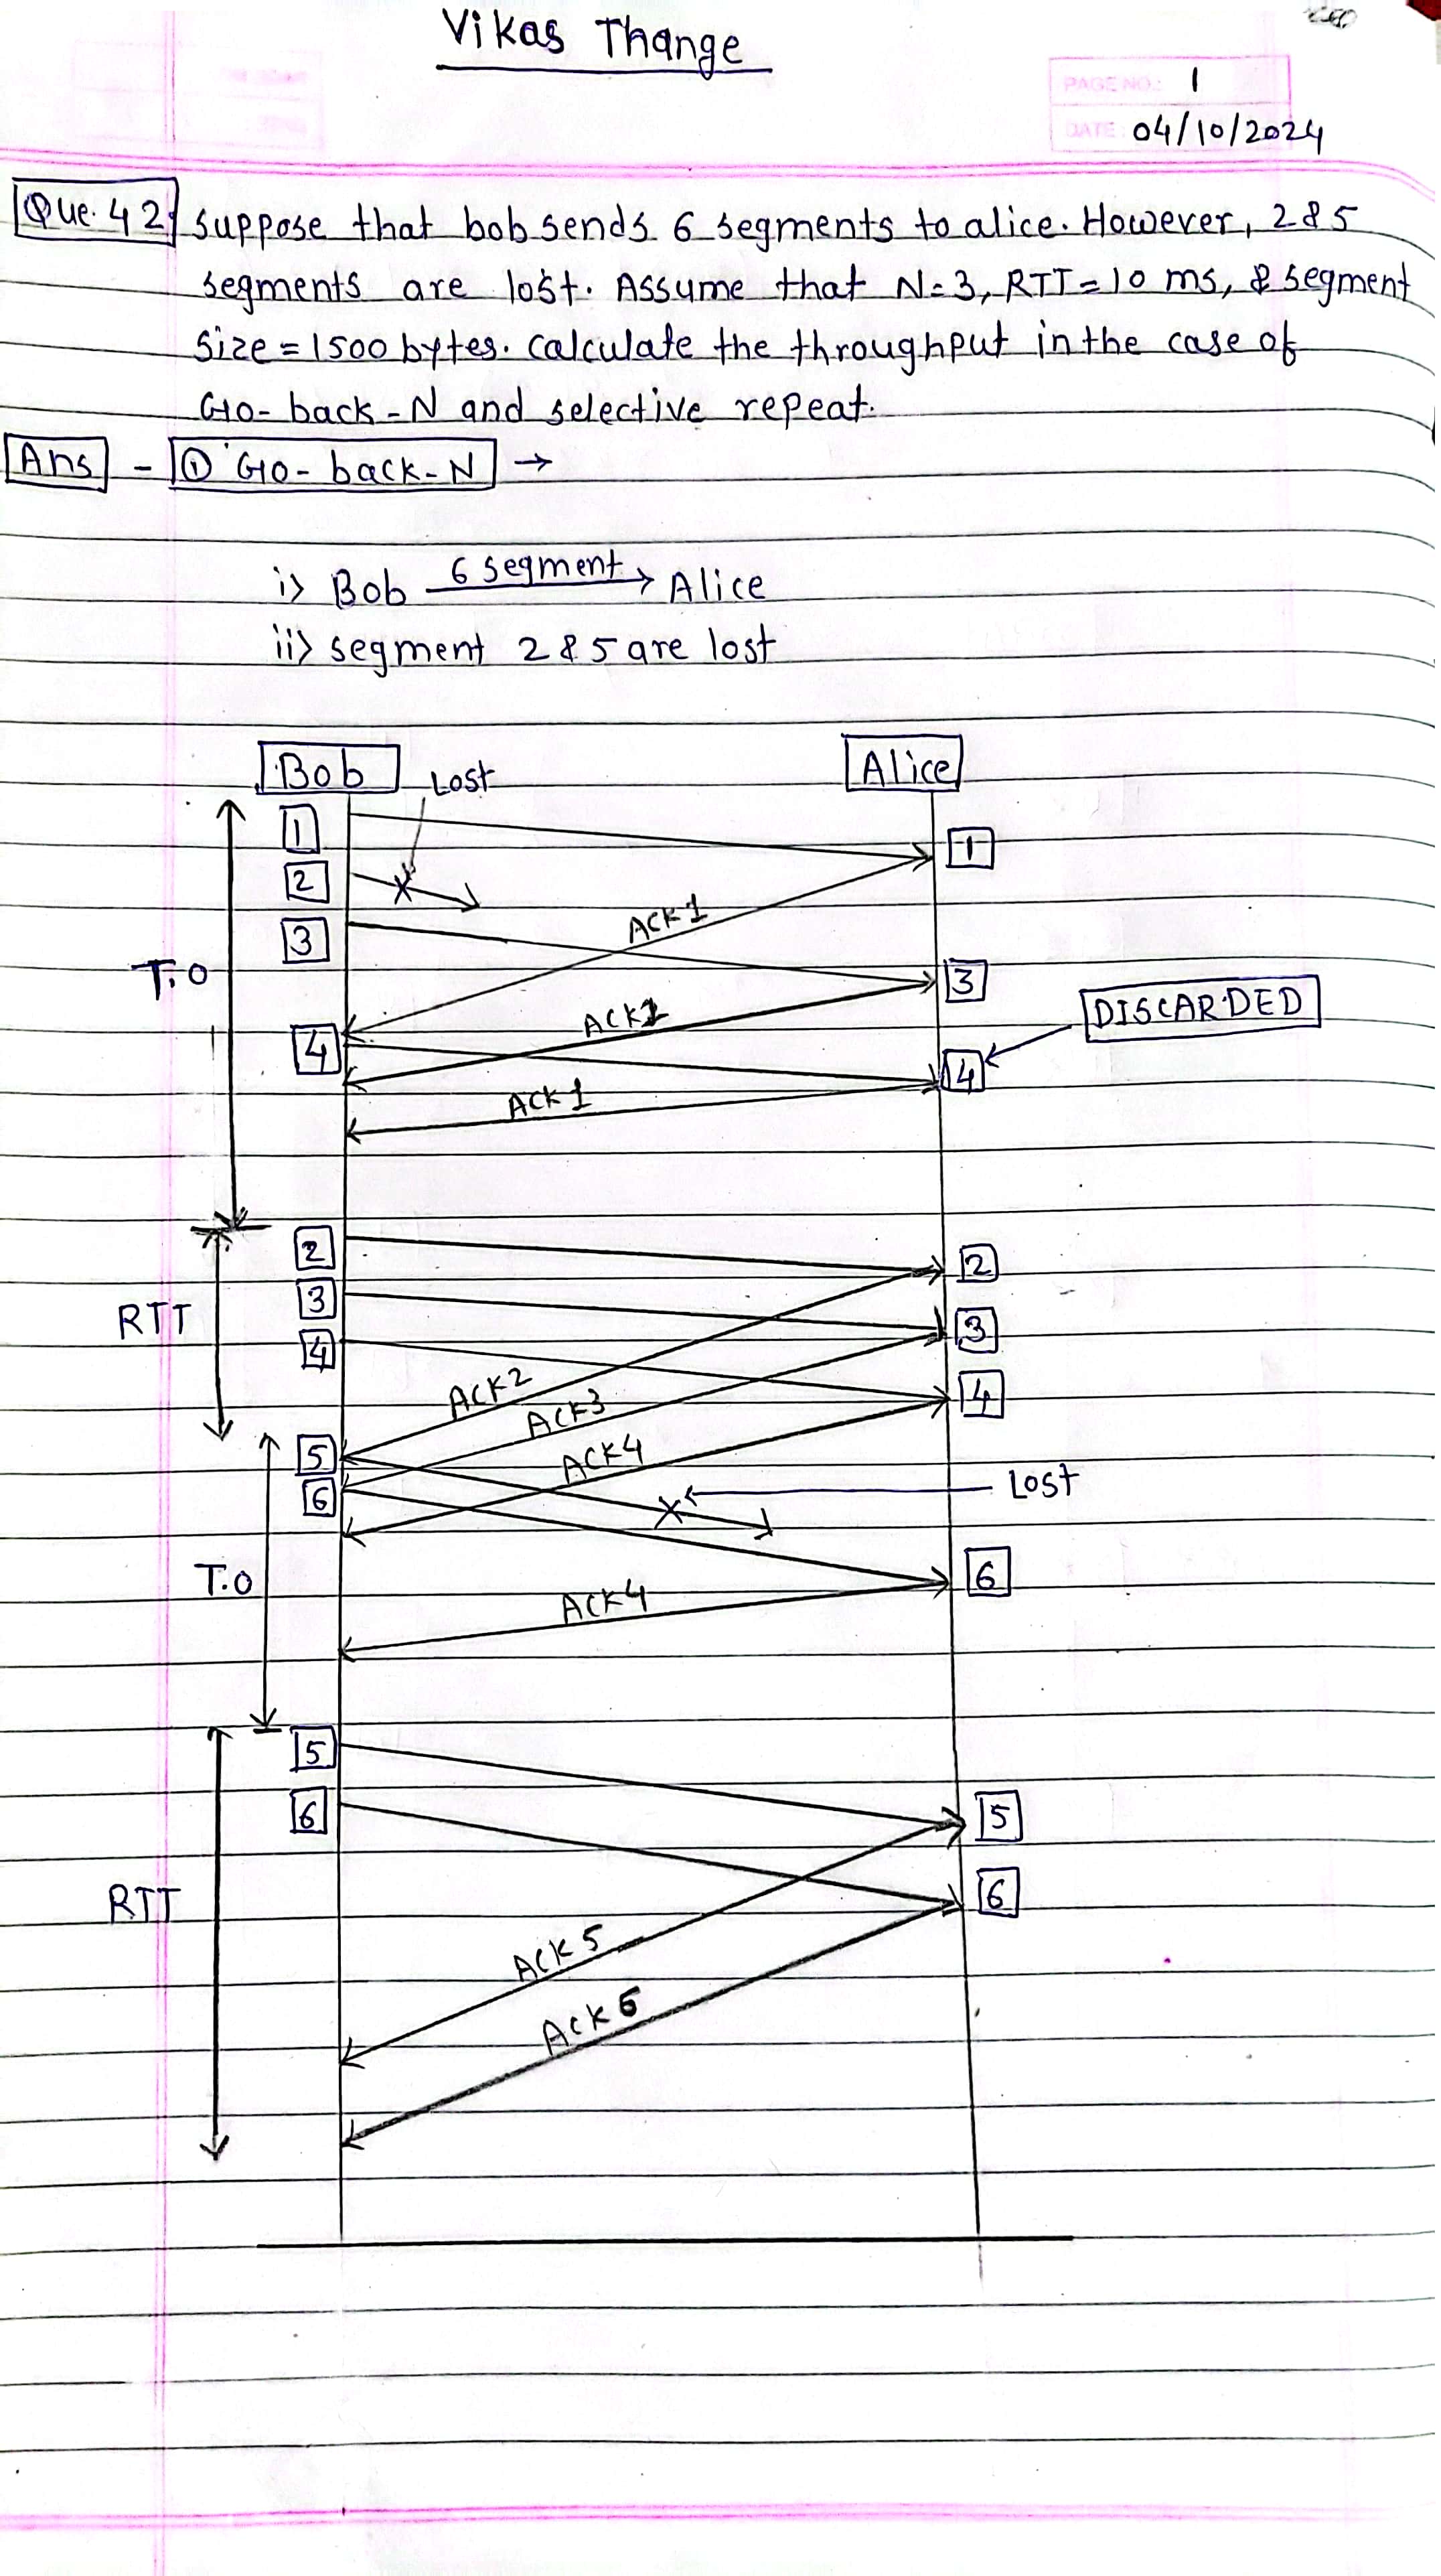 Vikas Thange
PAGE NO.: 1
DATE: 04/10/2024
Que. 42. suppose that bob sends 6 segments to alice. However, 2 & 5
segments are lost. Assume that N=3, RTT = 10 ms, & segment
size = 1500 bytes. calculate the throughput in the case of
Go-back-N and selective repeat.
Ans - ① Go-back-N →
i> Bob 6 segment → Alice
ii> segment 2 & 5 are lost
Bob Lost Alice
1 1
2
ACK 1
3
T.O 3
DISCARDED
ACK1
4 4
ACK 1
2 2
3 3
RTT
4 4
ACK2
ACK3
5 ACK4
6 Lost
T.O 6
ACK4
5
6 5
RTT 6
ACK 5
ACK 6